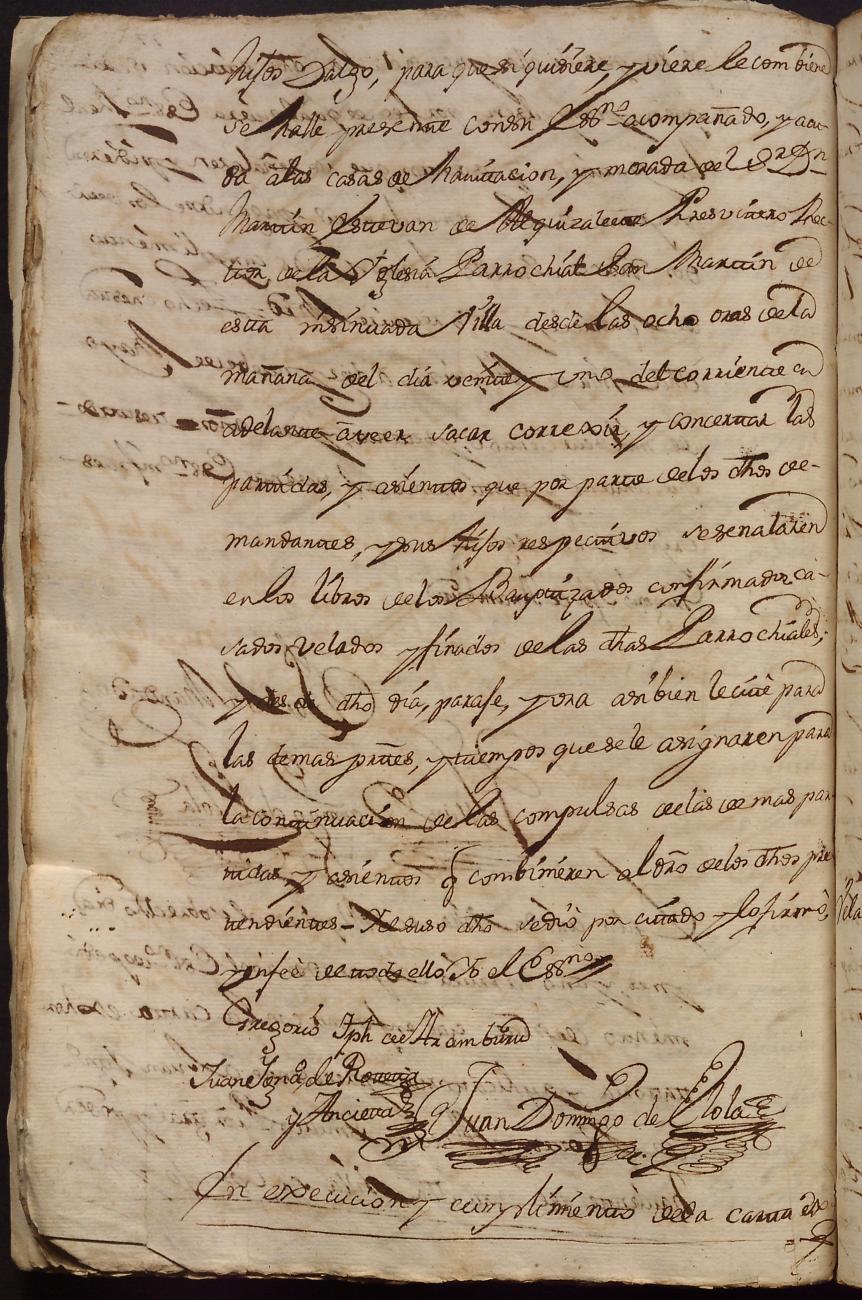 hijos Dalgo, para que si quisiere, y viere le combiene
se halle presente con su Essno acompañado, y acu-
da a las casas de havitacion, y morada del Sr Dn
Martin Estevan de Alquizalete Presvitero Rec-
tor de la Yglesia Parrochial San Martin de
esta insinuada Villa desde las ocho oras de la
mañana del dia veinte y uno del corriente en
adelante a veer sacar correxir, y concertar las
partidas, y asientos que por parte de los dhos de-
mandantes, y sus hijos respectivos se señalaren
en los libros de los Bauptizados confirmados ca-
sados velados y finados de las dhas Parrochiales,
y dho dia, paraje, y ora asi bien le cite para
las demas partes, y tiempos que se le asignaren para
la continuacion de las compulsas de las demas par-
tidas, y asientos q combinieren al dro de los dhos pre-
tendientes - De suso dho se dio por citado y lo firmò,
y en feè de todo ello Yo el Essno
Gregorio Jph de Aramburu
Juan Ygno de Roteta
y Ancieta
Juan Domingo de Elola
En execucion y cumplimiento de la carta